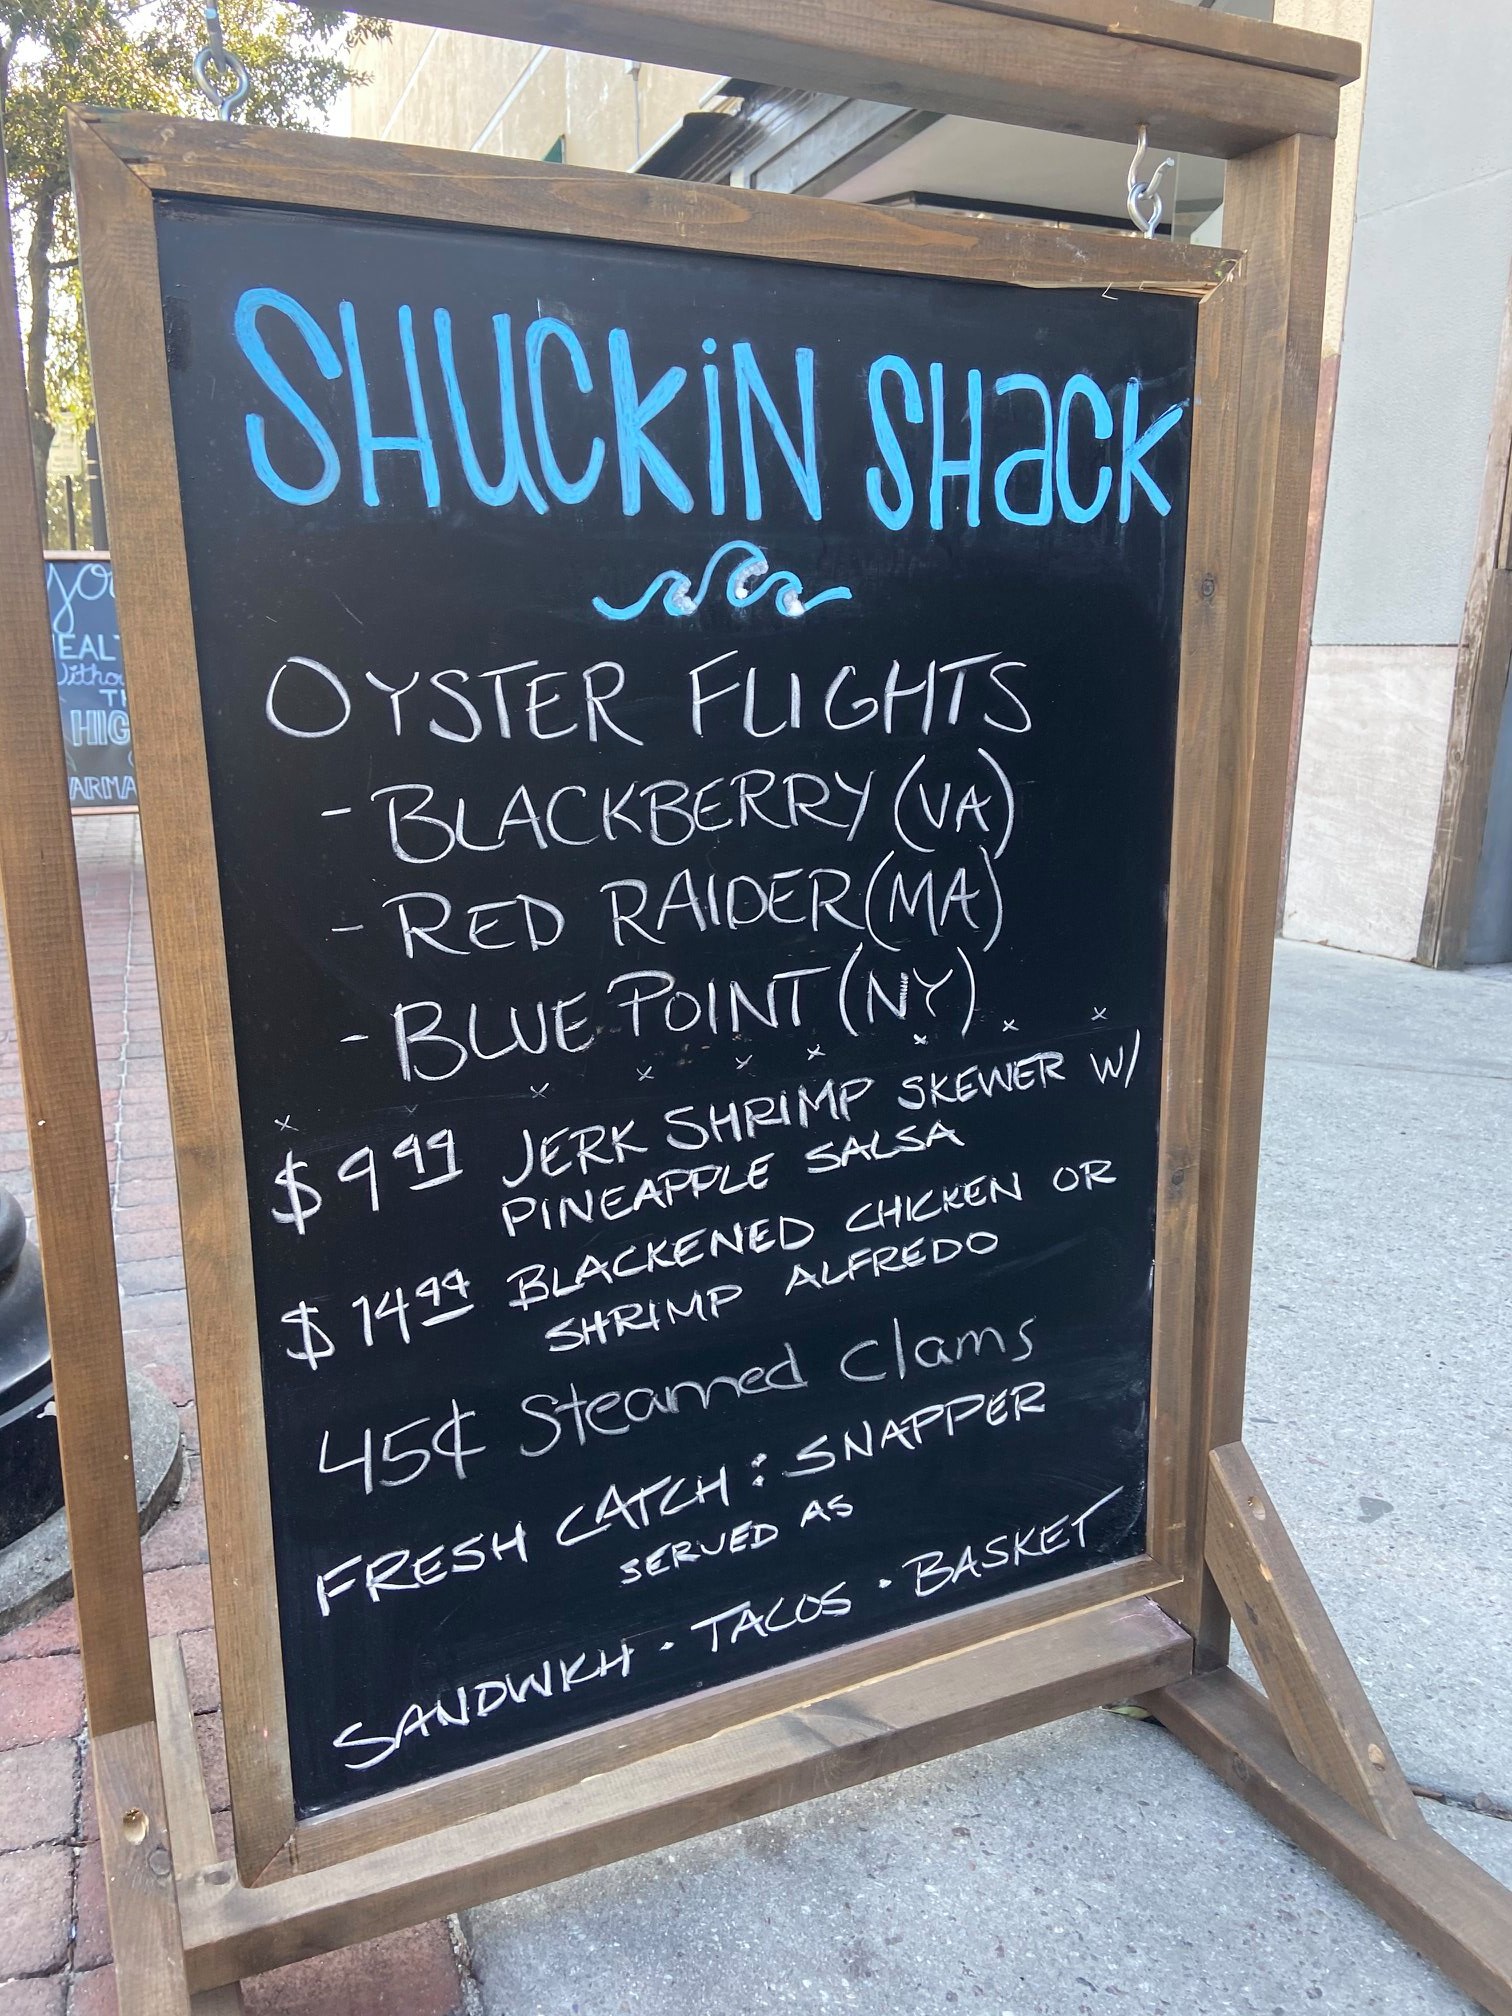 SHUCKiN SHaCK
OYSTER FLIGHTS
- BLACKBERRY (VA)
- RED RAIDER (MA)
- BLUE POINT (NY)
x x x x x x x x x
$ 9.99 JERK SHRIMP SKEWER W/
PINEAPPLE SALSA
$ 14.99 BLACKENED CHICKEN OR
SHRIMP ALFREDO
45¢ Steamed Clams
FRESH CATCH: SNAPPER
SERVED AS
SANDWICH · TACOS · BASKET
you
EALT
Witho
TH
HIG
ARMA